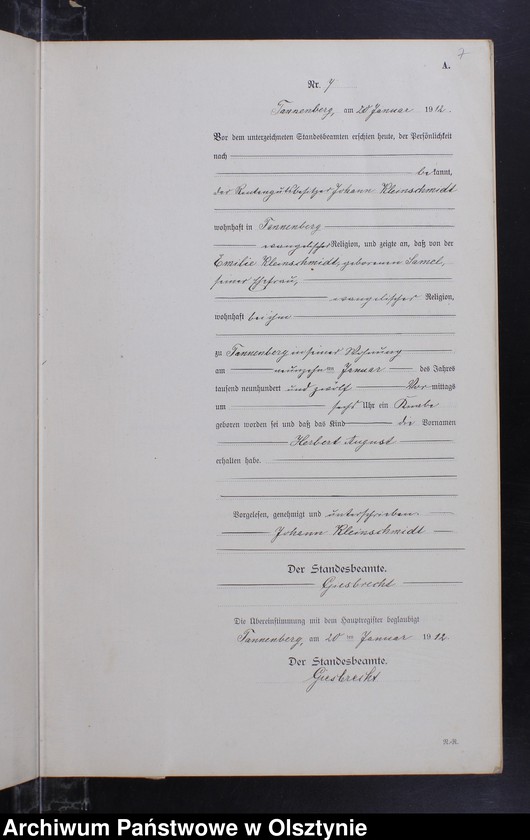 7
A.
Nr. 7
Tannenberg, am 20 Januar 1912.
Vor dem unterzeichneten Standesbeamten erschien heute, der Persönlichkeit
nach
bekannt,
der Rentengutsbesitzer Johann Kleinschmidt
wohnhaft in Tannenberg
evangelischer Religion, und zeigte an, daß von der
Emilie Kleinschmidt, geborenen Samel,
seiner Ehefrau,
evangelischer Religion,
wohnhaft bei ihm
zu Tannenberg in seiner Wohnung
am neunzehn ten Januar des Jahres
tausend neunhundert und zwölf Vor mittags
um sechs Uhr ein Knabe
geboren worden sei und daß das Kind die Vornamen
Herbert August
erhalten habe.
Vorgelesen, genehmigt und unterschrieben
Johann Kleinschmidt
Der Standesbeamte.
Giesbrecht
Die Übereinstimmung mit dem Hauptregister beglaubigt
Tannenberg, am 20 ten Januar 1912.
Der Standesbeamte.
Giesbrecht
Archiwum Państwowe w Olsztynie